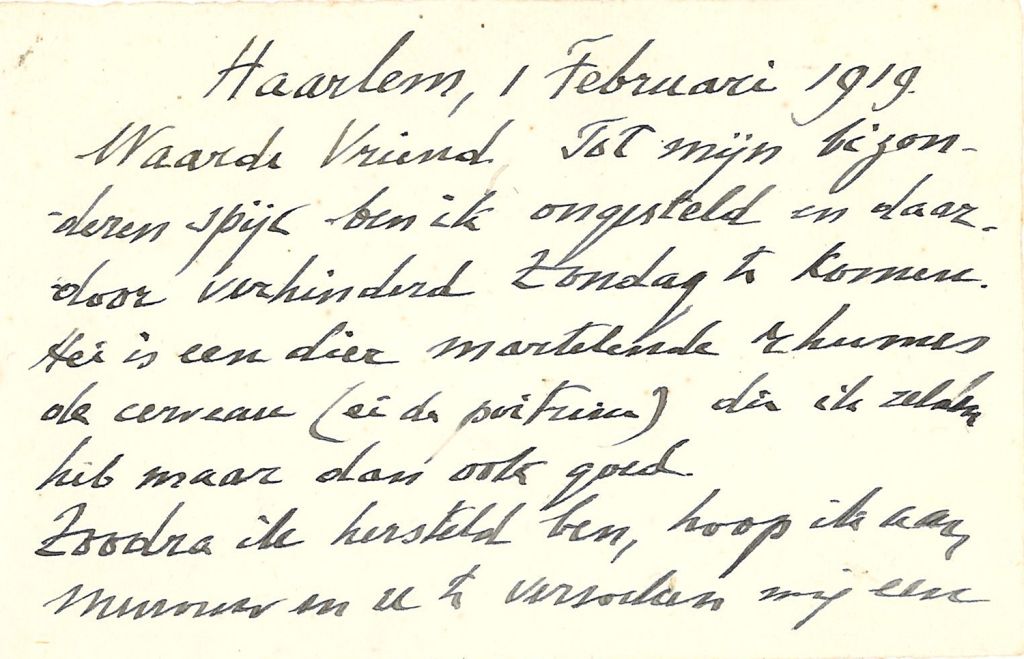 Haarlem, 1 Februari 1919.
Waarde Vriend, Tot mijn bizon-
deren spijt ben ik ongesteld en daar-
door verhinderd Zondag te komen.
Het is een dier martelende rhumes
de cerveau (et de poitrine) die ik zelden
heb maar dan ook goed.
Zoodra ik hersteld ben, hoop ik aan
mevrouw en u te verzoeken mij een